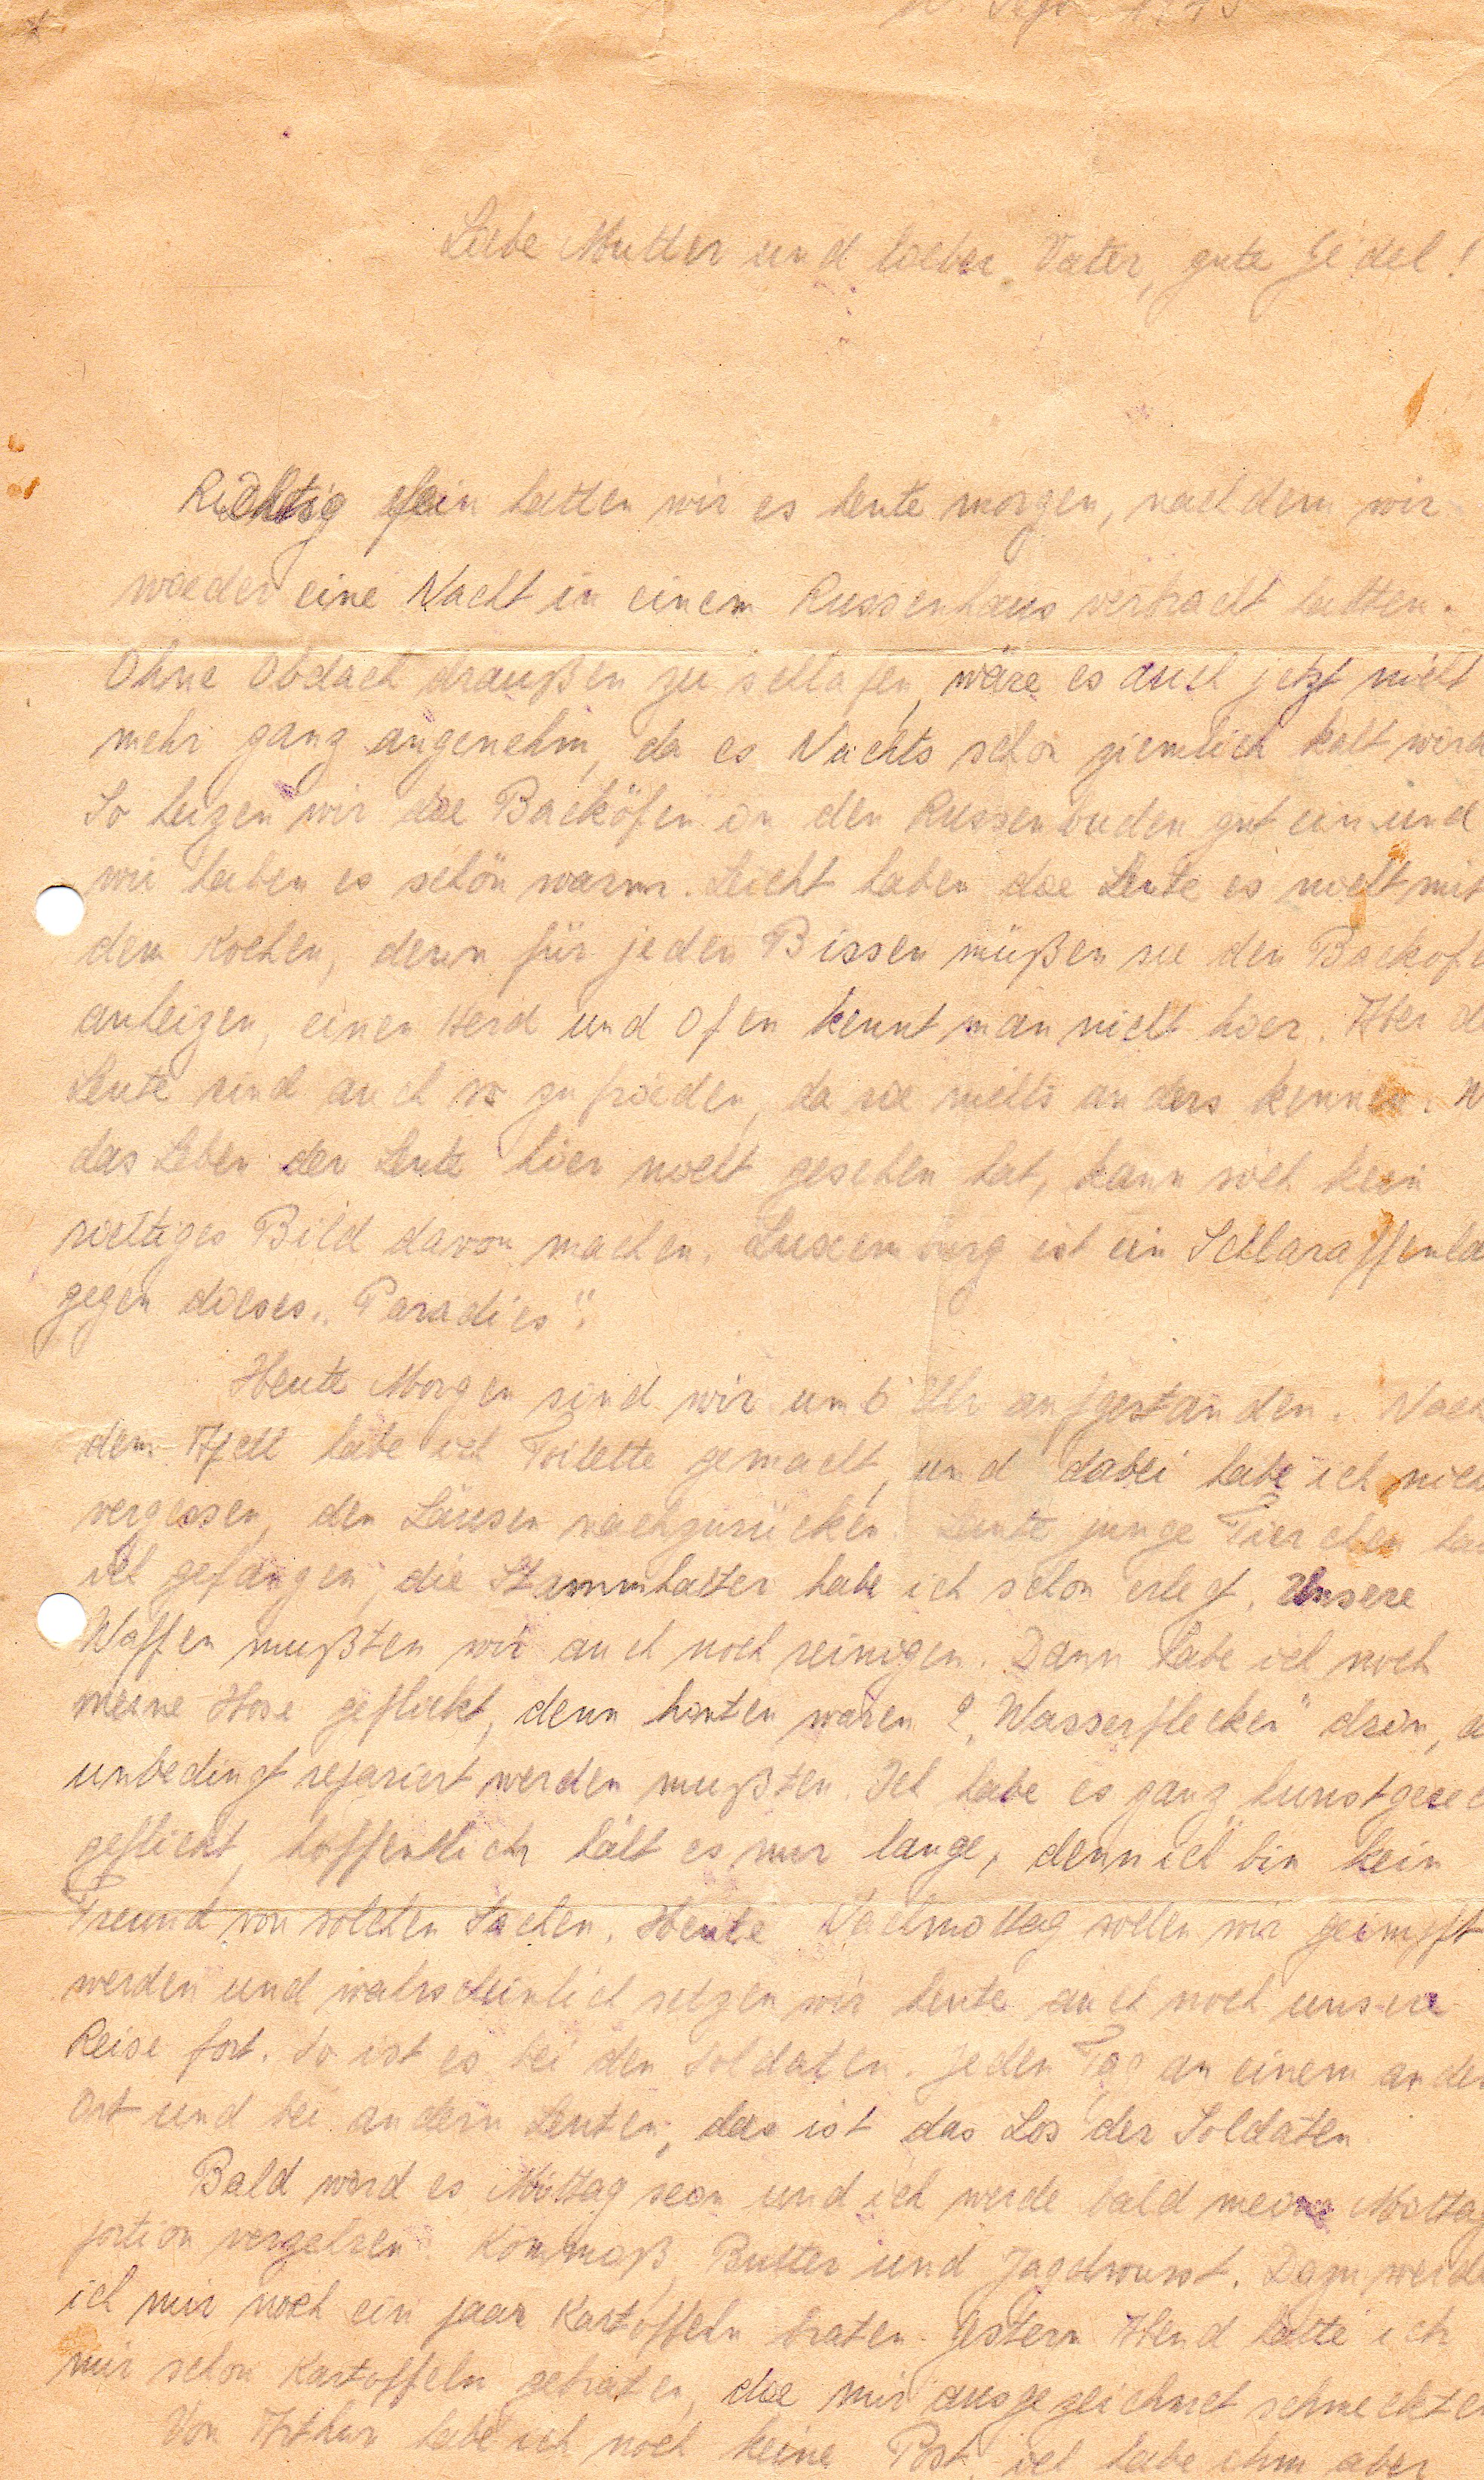 Sept 1943
Liebe Mutter und lieber Vater, gute Jedel!
Richtig fein hatten wir es heute morgen, nachdem wir
wieder eine Nacht in einem Russenhaus verbracht hatten.
Ohne Obdach draußen zu schlafen, wäre es auch jetzt nicht
mehr ganz angenehm, da es Nachts schon ziemlich kalt wird
So heizen wir die Backöfen in den Russenbuden gut ein und
wir haben es schön warm. Leicht haben die Leute es nicht mit
dem Kochen, denn für jeden Bissen müßen sie den Backofe
anheizen, einen Herd und Ofen kennt man nicht hier. Aber d
Leute sind auch so zufrieden, da sie nichts anders kennen. W
das Leben der Leute hier nicht gesehen hat, kann sich kein
richtiges Bild davon machen. Luxemburg ist ein Schlaraffenla
gegen dieses „Paradies".
Heute Morgen sind wir um 6 Uhr aufgestanden. Nach
dem Apell habe ich Toilette gemacht, und dabei habe ich nich
vergessen, den Läusen nachzurücken. Heute junge Tierchen ha
ich gefangen, die Stammhalter habe ich schon erlegt. Unsere
Waffen mußten wir auch noch reinigen. Dann habe ich noch
meine Hose geflickt, denn hinten waren 2 „Wasserflecken" drin, d
unbedingt repariert werden mußten. Ich habe es ganz kunstgerec
geflickt, hoffentlich hält es nur lange, denn ich bin kein
Freund von solchen Sachen. Heute Nachmittag sollen wir geimpft
werden und wahrscheinlich setzen wir heute auch noch unsere
Reise fort. So ist es bei den Soldaten. Jeden Tag an einem ander
Ort und bei andern Leuten, das ist das Los der Soldaten.
Bald wird es Mittag sein und ich werde bald meine Mittag
portion verzehren. Kommaß, Butter und Jagdwurst. Dazu werde
ich mir noch ein paar Kartoffeln braten. Gestern Abend hatte ich
mir schon Kartoffeln gebraten, die mir ausgezeichnet schmeckte
Von Arthur habe ich noch keine Post, ich habe ihm aber